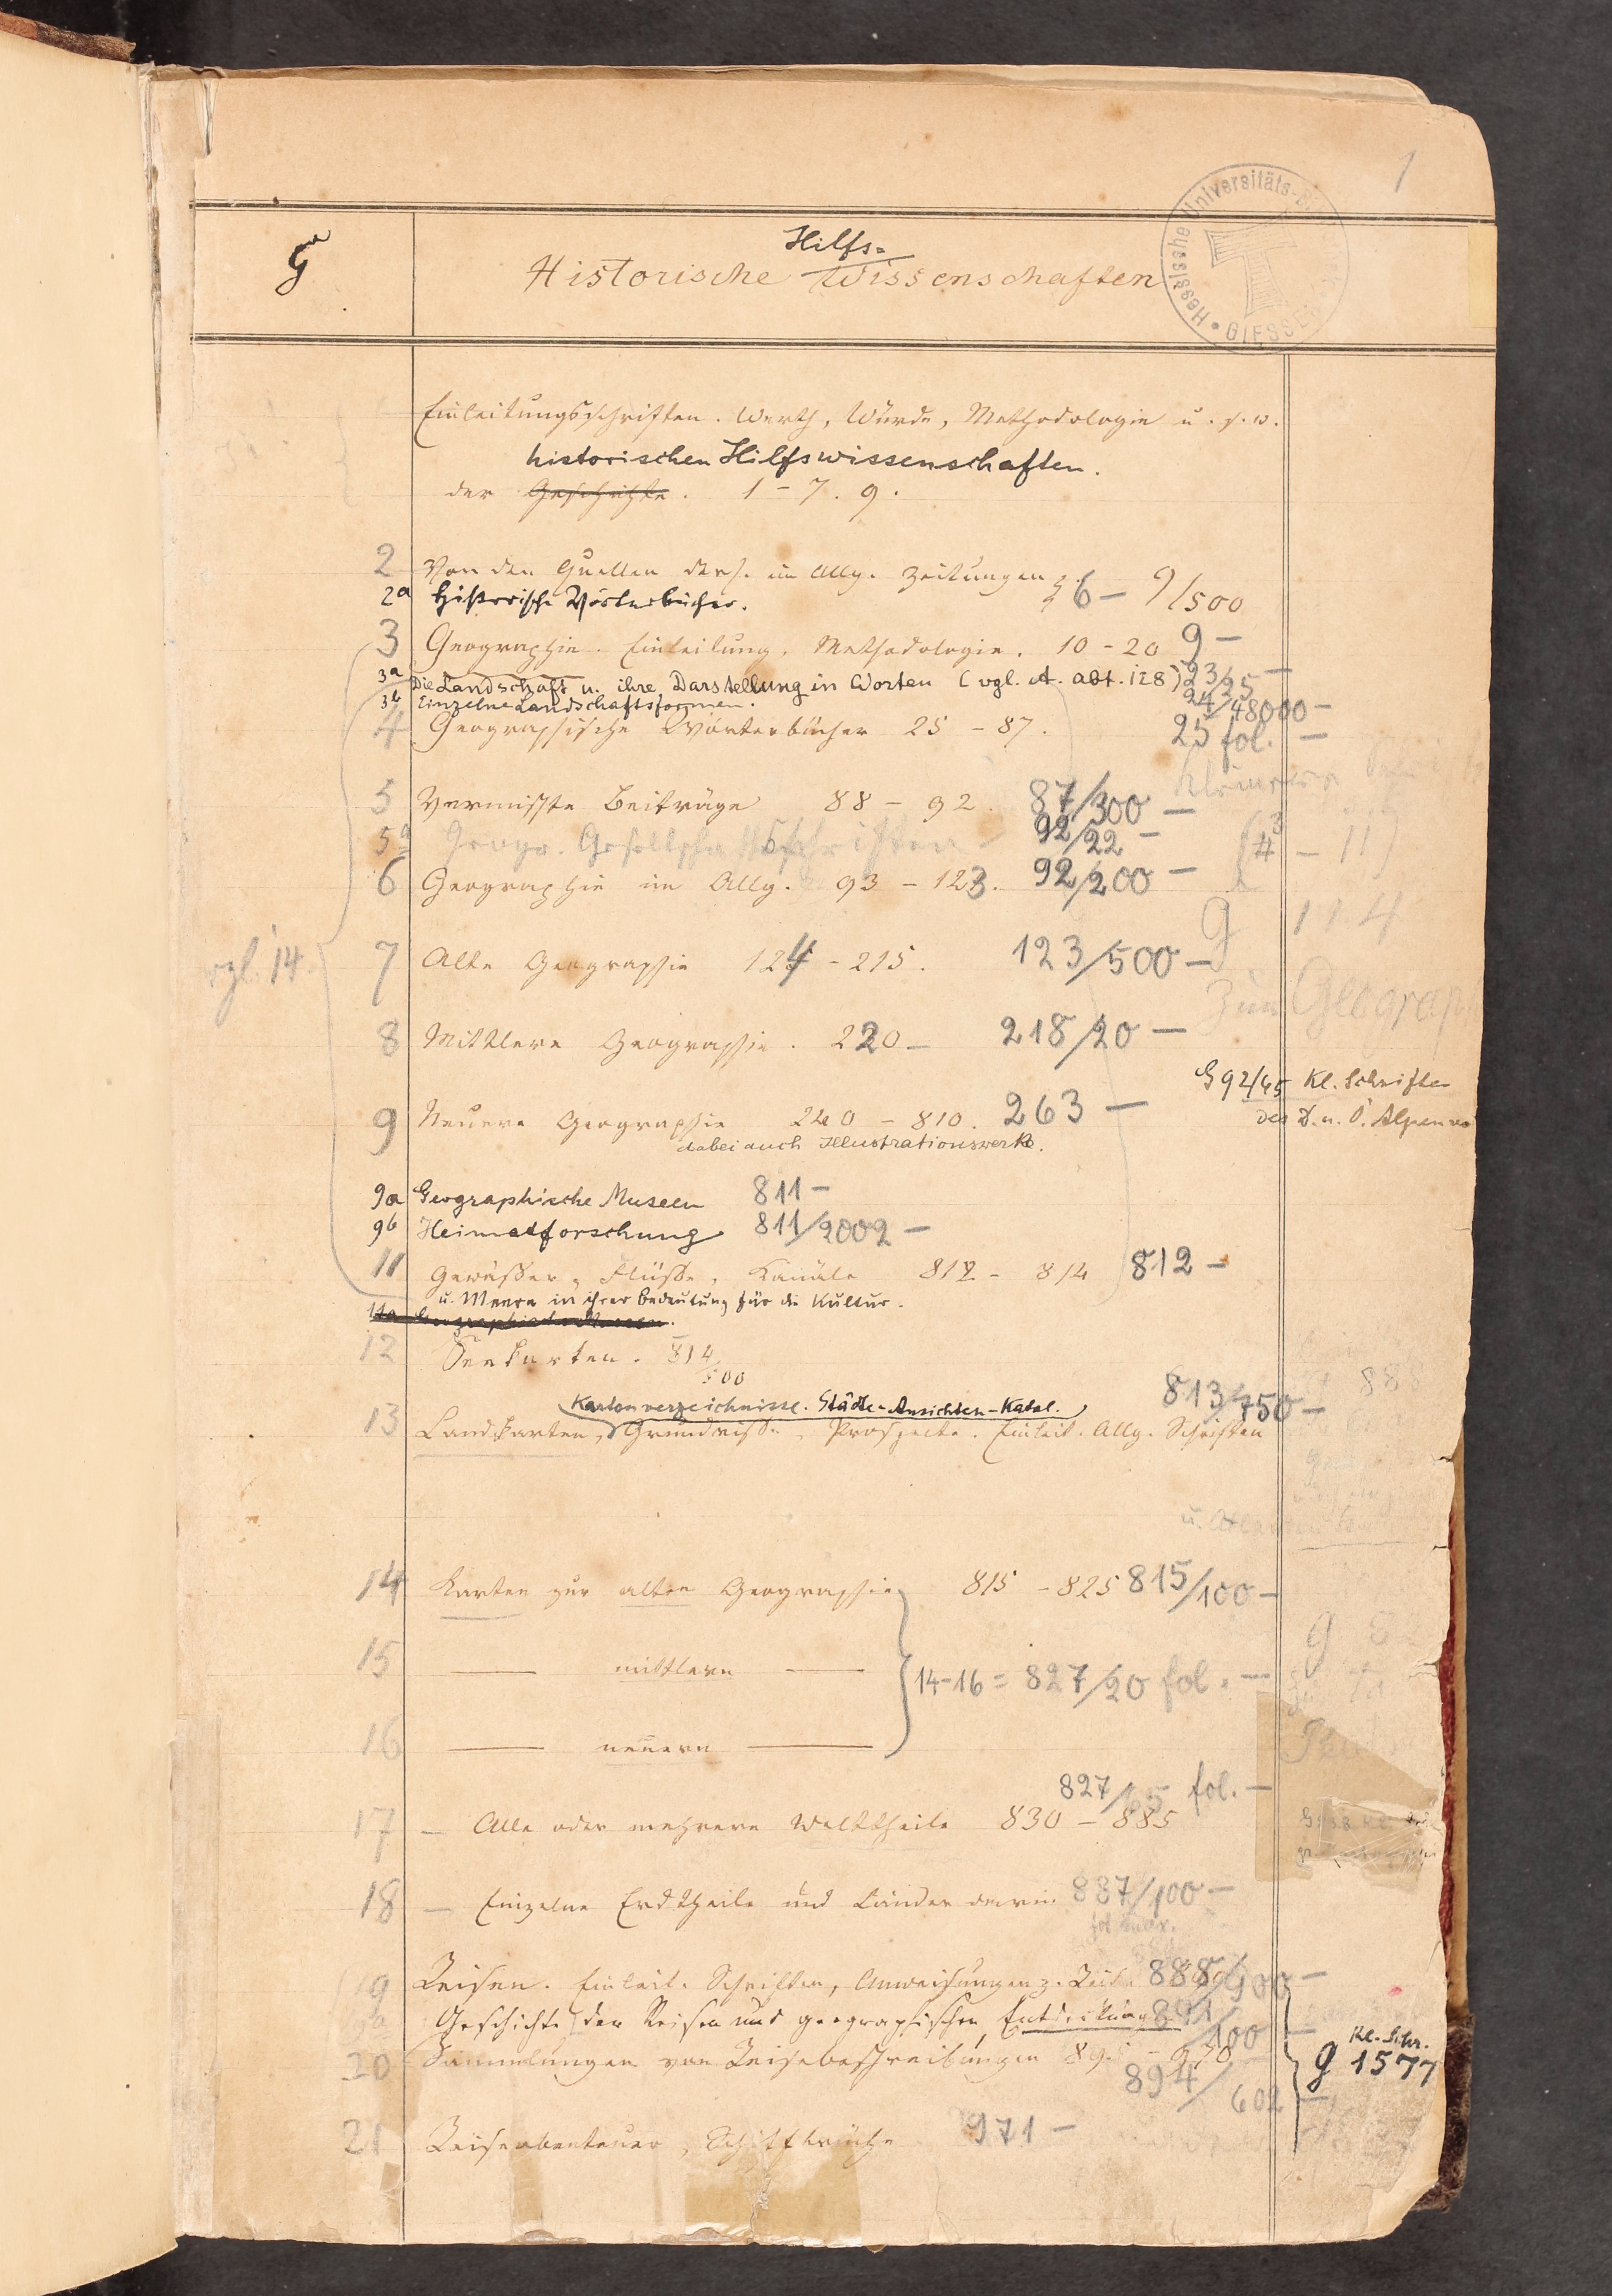 1
Hessische Universitäts-
GIESSE
G
Hilfs-
Historische Wissenschaften
Einleitungsschriften. Werth, Würde, Methodologie u. s. w.
historischen Hilfswissenschaften.
der Geschichte. 1 - 7. 9.
2 Von den Quellen ders. im Allg. Zeitungen 6 - 9/500
2a Historische Wörterbücher.
3 Geographie. Einleitung, Methodologie. 10 - 20 9 -
3a Die Landschaft u. ihre Darstellung in Worten (vgl. A. abt. 128) 23/25 -
3b Einzelne Landschaftsformen. 24/48000 -
4 Geographische Wörterbücher 25 - 87. 25 fol. -
5 Vermischte Beiträge 88 - 92. 87/300 -
5a Geogr. Gesellschaftsschriften 92/22 -
6 Geographie im Allg. 93 - 123. 92/200 -
g 114
vgl. 14
7 Alte Geographie 124 - 215. 123/500 -
zur Geograp
8 Mittlere Geographie. 220 - 218/20 -
G 92/45 Kl. Schriften
9 Neuere Geographie 240 - 810. 263 -
des D. u. Ö. Alpenve
dabei auch Illustrationswerke.
9a Geographische Museen 811 -
9b Heimatforschung 811/2002 -
11 Gewässer, Flüsse, Kanäle 812 - 814 812 -
u. Meere in ihrer Bedeutung für die Kultur.
11a Geographische Museen.
12 Seekarten. 814/500
Kartenverzeichnisse. Städte-Ansichten-Katal. 813/750 -
13 Landkarten, Grundrisse, Prospecte. Einleit. Allg. Schriften
14 Karten zur alten Geographie 815 - 825 815/100 -
15 — mittlern —
14-16 = 827/20 fol. -
16 — neuern —
827/65 fol. -
17 — Alle oder mehrere Welttheile 830 - 885
18 — Einzelne Erdtheile und Länder darin 837/100 -
19 Reisen. Einleit. Schriften, Anweisungen z. Reis. 888/900 -
Geschichte der Reisen und geographischen Entdeckungen 891/100 -
Kl. Schr.
g 1577
20 Sammlungen von Reisebeschreibungen 895 - 950
894/602 -
21 Reiseabenteuer, Schiffbrüche 971 -